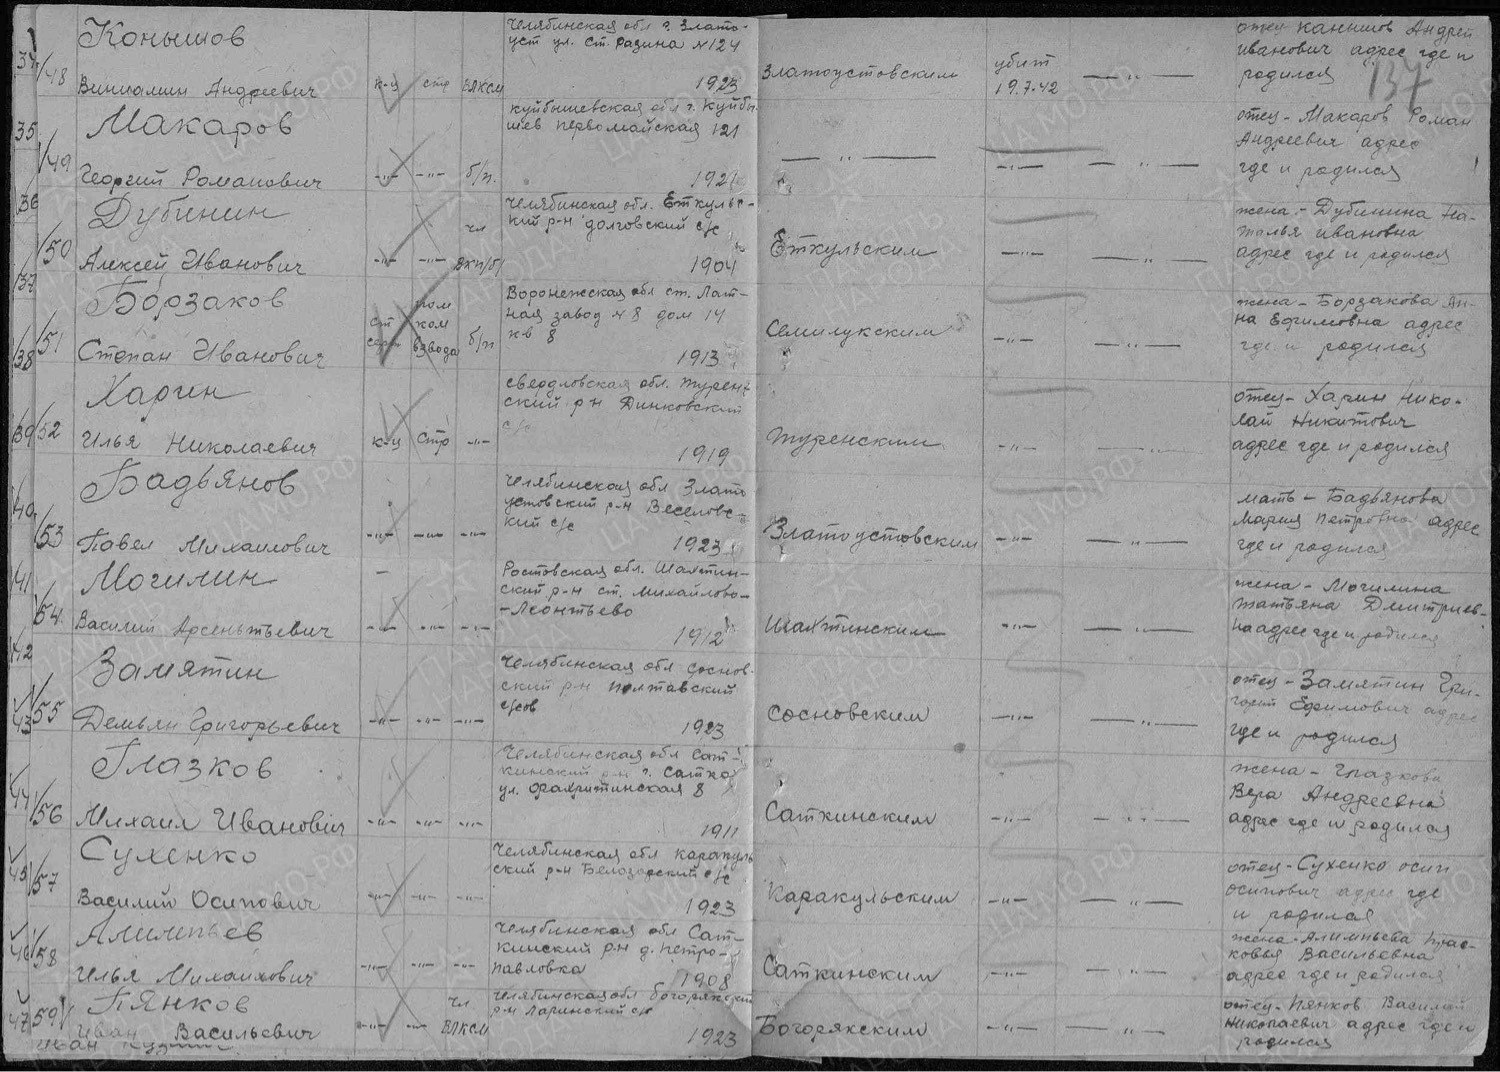 137
34/48 Конышов
Виниамин Андреевич
к-ц стр ВЛКСМ
Челябинская обл г. Злато-
уст ул. Ст. разина №124
1923
Златоустовским
убит
19.7.42
— " —
отец Канышов Андрей
иванович адрес где и
родился
35/49 Макаров
Георгий Романович
-"- -"- б/п.
куйбышевская обл г. Куйбы-
шев первомайская 121
1921
— " — -"- — " —
отец - Макаров Роман
Андреевич адрес
где и родился
36/50 Дубинин
Алексей Иванович
-"- -"- чл
вкп/б/
Челябинская обл. Еткульс-
кий р-н долговский с/с
1904
Еткульским -"- — " —
жена - Дубинина На-
талья ивановна
адрес где и родился
37/51 Борзаков
Степан Иванович
ст
серж
пом
ком
взвода
б/п
Воронежская обл ст. Лат-
ная завод №8 дом 14
кв 8
1913
Семилукским -"-
жена - Борзакова Ан-
на Ефимовна адрес
где и родился
38/52 Харин
Илья Николаевич
к-ц стр -"-
свердловская обл. турен-
ский р-н Динковский
с/с
1919
туренским -"- — " —
отец - Харин Нико-
лай Никитович
адрес где и родился
40/53 Бадьянов
Павел Михаилович
-"- -"- -"-
Челябинская обл Злато
устовский р-н Веселовс-
кий с/с
1923
Златоустовским -"- — " —
мать - Бадьянова
Мария петровна адрес
где и родился
41/54 Могилин
Василий Арсентьевич
-"- -"- -"-
Ростовская обл. Шахтин-
ский р-н ст. михайлово-
-Леонтьево
1912
Шахтинским -"- — " —
жена - Могилина
татьяна Дмитриев-
на адрес где и родился
42/55 Замятин
Демьян Григорьевич
-"- -"- -"-
Челябинская обл соснов-
ский р-н полтавский
с/сов
1923
сосновским -"- — " —
отец - Замятин Гри-
горий Ефимович адрес
где и родился
44/56 Глазков
Михаил Иванович
-"- -"- -"-
Челябинская обл сат-
кинский р-н г. сатка
ул. 8
1911
Саткинским -"- — " —
жена - Глазкова
Вера Андреевна
адрес где и родился
45/57 Сухенко
Василий Осипович
-"- -"- -"-
Челябинская обл каракуль
ский р-н Белозорский с/с
1923
Каракульским -"- — " —
отец - Сухенко осип
осипович адрес где
и родился
46/58 Алимпьев
Илья Михаихович
-"- -"- -"-
Челябинская обл Сат-
кинский р-н д. петро-
павловка
1908
Саткинским -"- — " —
жена - Алимпьева прас-
ковья Васильевна
адрес где и родился
47/59 Пянков
Иван Васильевич
-"- -"- чл
ВЛКСМ
Челябинская обл богорякский
р-н Ларинский с/с
1923
Богорякским -"- — " —
отец - Пянков Василий
Николаевич адрес где и
родился